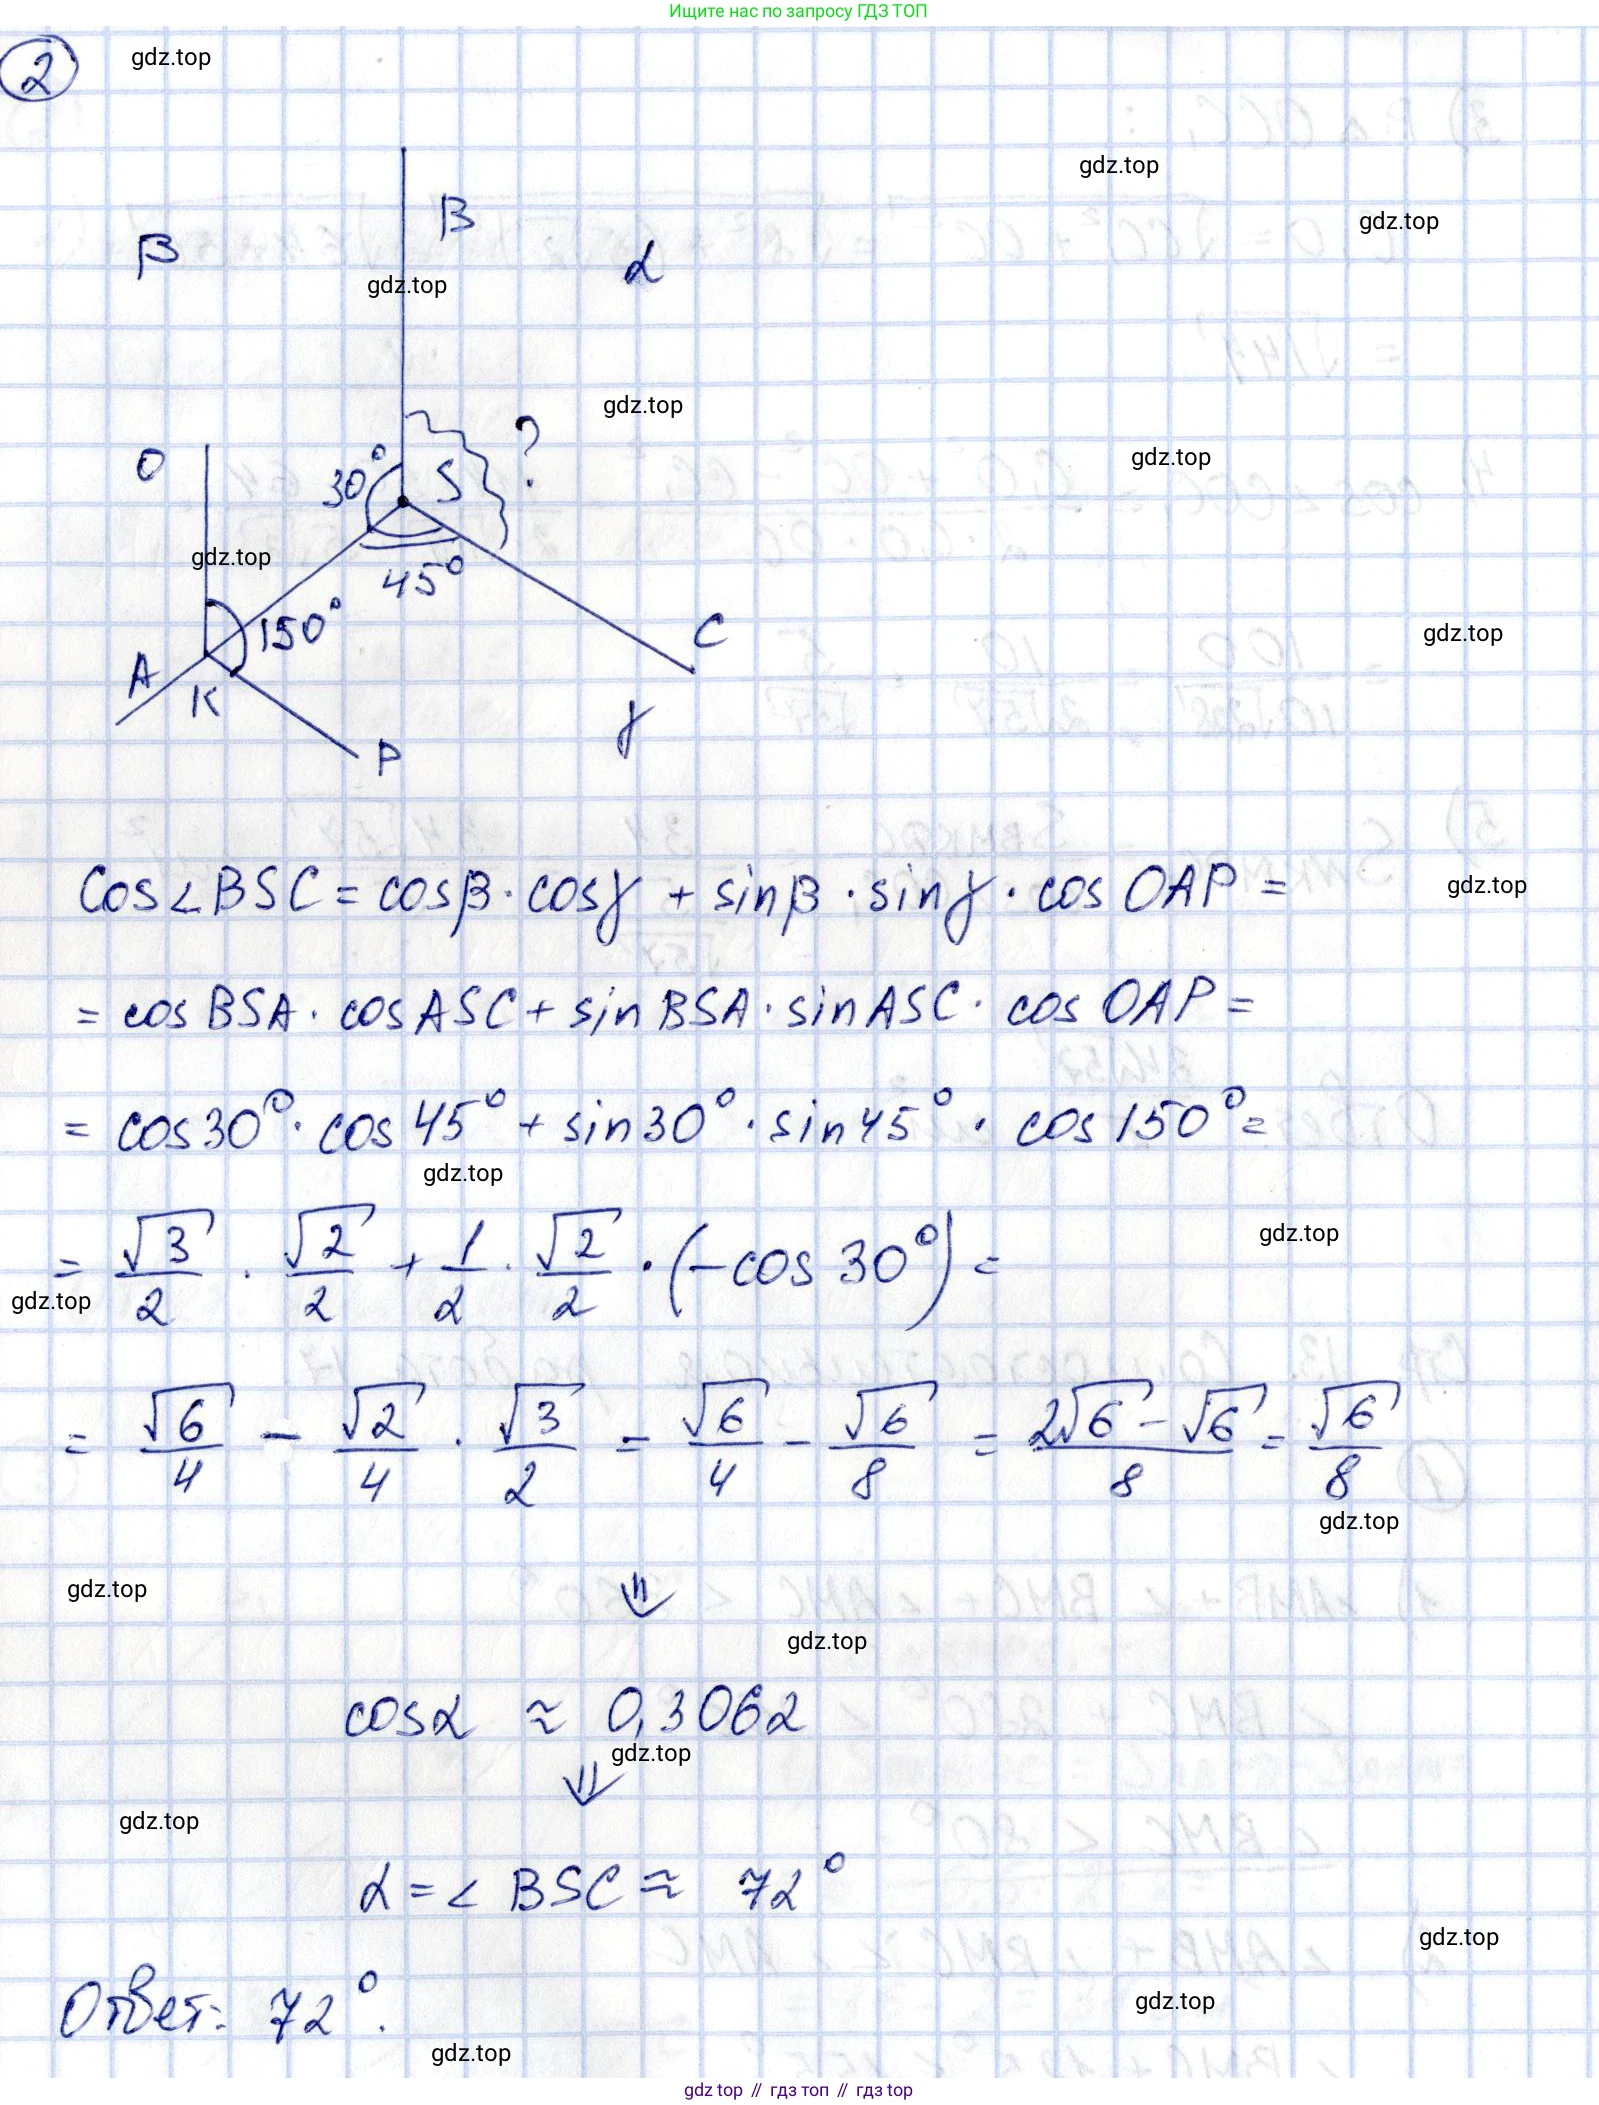 Ищите нас по запросу ГДЗ ТОП
2
gdz.top
gdz.top
β
B
α
gdz.top
gdz.top
gdz.top
O
30°
S
?
gdz.top
gdz.top
45°
150°
A
K
C
gdz.top
P
γ
Cos∠BSC = cosβ · cosγ + sinβ · sinγ · cos OAP =
gdz.top
= cos BSA · cos ASC + sin BSA · sin ASC · cos OAP =
= cos 30° · cos 45° + sin 30° · sin 45° · cos 150° =
gdz.top
gdz.top
= √3/2 · √2/2 + 1/2 · √2/2 · (-cos 30°) =
gdz.top
= √6/4 - √2/4 · √3/2 = √6/4 - √6/8 = (2√6 - √6)/8 = √6/8
gdz.top
gdz.top
⇓
gdz.top
cosα ≈ 0,3062
gdz.top
⇓
gdz.top
α = ∠BSC ≈ 72°
gdz.top
Ответ: 72°.
gdz.top
gdz.top
gdz top // гдз топ // гдз top